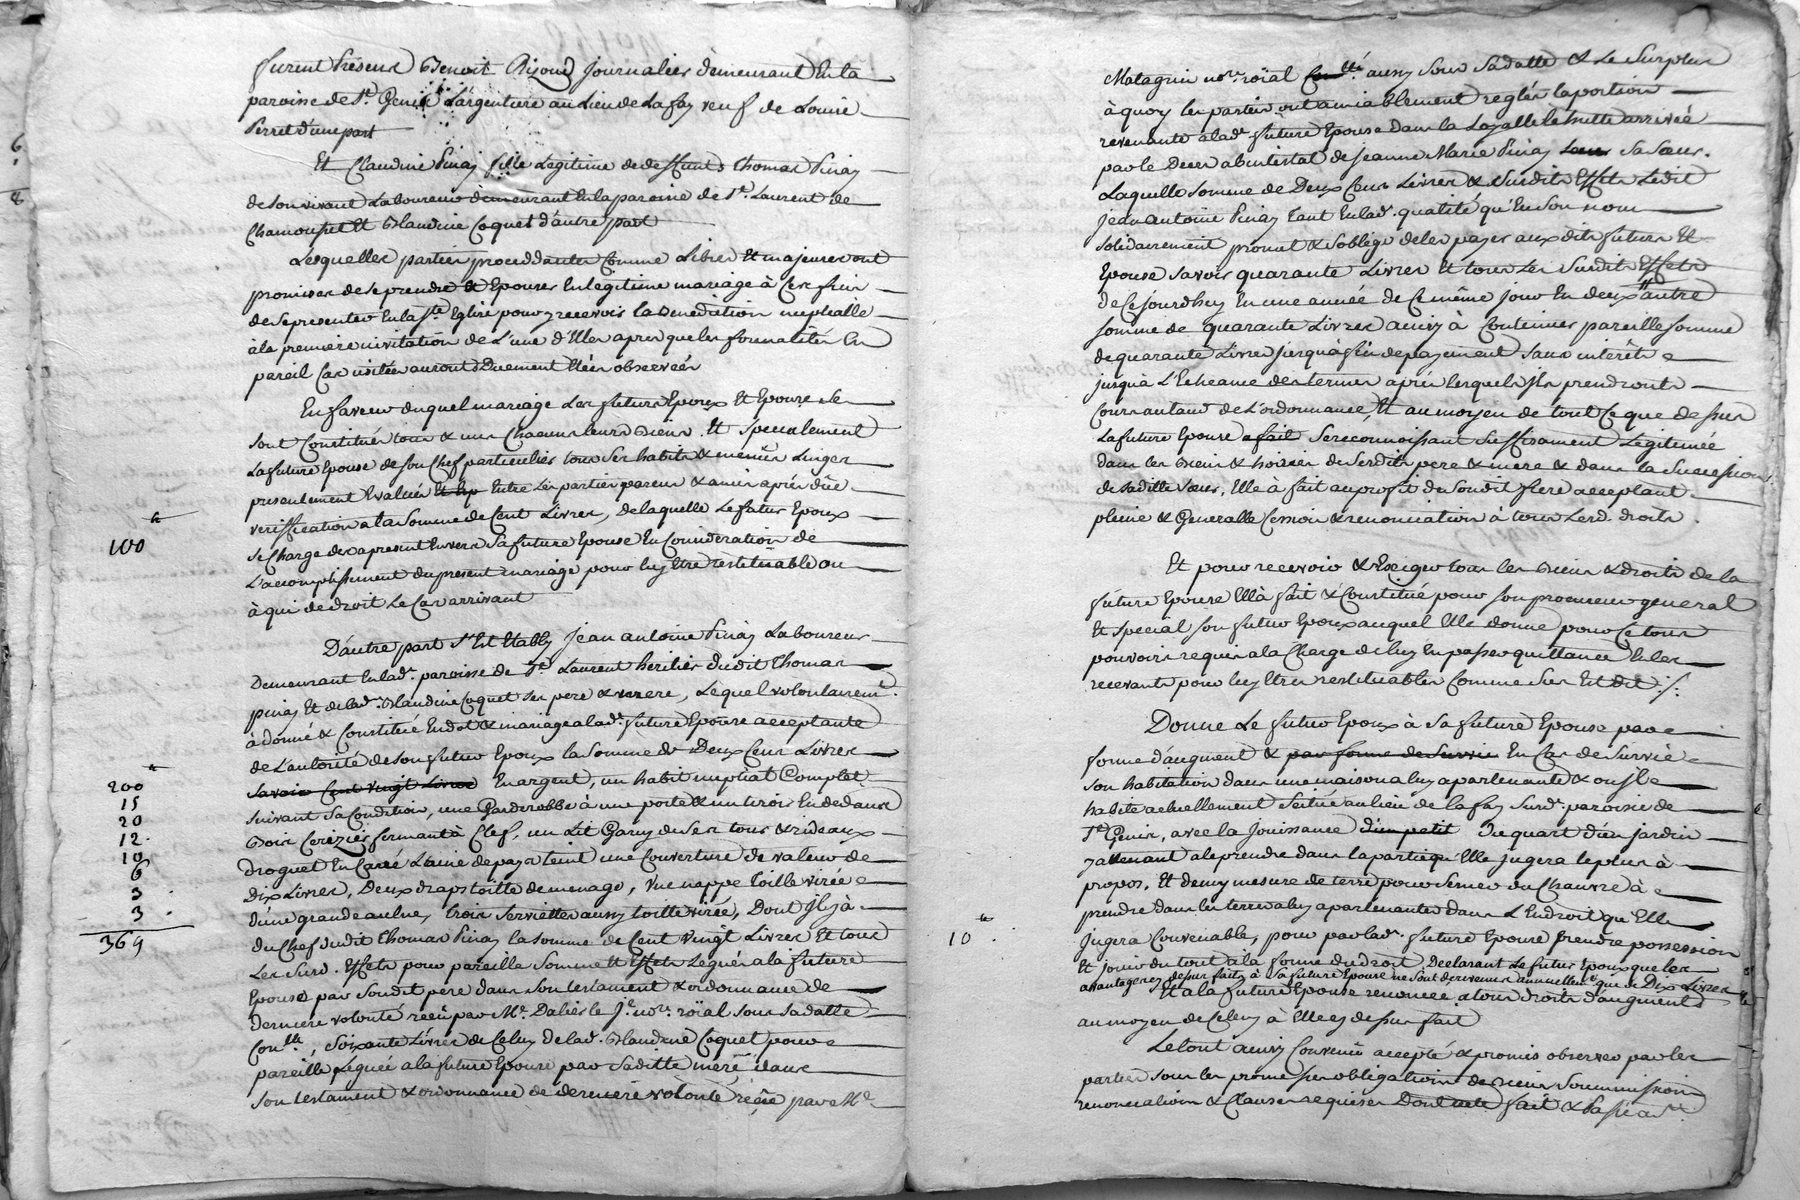 furent présens Benoit Rizoud Journalier demeurant En la
paroisse de St. Genis L'argentiere au Lieu de Lafay veuf de Louise
Perret d'une part
Et Claudine Pinay fille Legitime de deffunts Thomas Pinay
de son vivant Laboureur demeurant En la paroisse de St. Laurent de
Chamousset Et Blandine Coquet d'autre part
Lesquelles parties proceddantes Comme Libres Et majeures ont
promises de se prendre & Epouser En legitime mariage à Ces fins
de se presenter En la Ste Eglise pour y recevoir la Benediction nuptialle
à la premiere invitation de L'une d'Elles apres que les formalités En
pareil Cas usitées auront Duement Etées observées
En faveur duquel mariage Les futurs Epoux Et Epouse se
sont Constitués tous & uns Chacuns leurs Biens. Et specialement
La future Epouse de son Chef particulier tous ses habits & menus Linges
presentement Evalués Et Esp Entre Les parties parens & amis après düe
veriffication a la Somme de Cent Livres, de laquelle Le futur Epoux
100 #
se Charge des apresent Envers Sa future Epouse En Consideration de
L'accomplissement du present mariage pour luy Etre restituable ou
à qui de droit le Cas arrivant
D'autre part S'Est Etably Jean antoine Pinay Laboureur
Demeurant En lad. paroisse de St. Laurent heritier dudit Thomas
pinay Et de lad. Blandine Coquet ses pere & mere, Lequel volontairemt.
à donné & Constitué En dot & mariage a lad. future Epouse acceptante
de L'autorité de son futur Epoux la Somme de Deux Cens Livres
200 #
Savoir Cent vingt Livres En argent, un habit nuptial Complet
15
suivant Sa Condition, une Garderobbe à une porte & un tiroir En dedans
20
Bois Cerizier fermant à Clef, un Lit Garny de ses tours & rideaux
12.
droguet En Carré Laine de pays teint une Couverture de valeur de
10
Dix Livres, Deux draps toille de menage, Une nappe toille virée
6
d'une grande aulne, trois Serviettes aussy toille virée, Dont Il y à
3
3.
du Chef dudit Thomas Pinay la somme de Cent vingt Livres Et tous
369
Les Surd. Effets pour pareille Somme Et Effets Legués a la future
Epouse par Soudit pere dans Son testament & ordonnance de
derniere volonté reçu par Me. Dalier le Je. nore. roïal sous Sa datte
Conlle, Soixante Livres de Celuy de lad. Blandine Coquet pour
pareille Leguée a la future Epouse par Saditte mere dans
son testament & ordonnance de derniere volonté reçüe par Me
Matagrin nore. roïal Conlle. aussy Sous Sa datte & Le Surplus
à quoy les parties ont amiablement reglés la portion
revenante a lad. future Epouse dans la Legalle hütte arrivée
par le Deces abintestat de Jeanne Marie Pinay soeur Sa soeur.
Laquelle Somme de Deux Cens Livres & Susdits Effets Ledit
Jean antoine Pinay tant En lad. qualité qu'En Son nom
solidairement promet & s'oblige de les payer aux dits futurs Et
Epouse Savoir quarante Livres Et tous les Susdits Effets
de Ce jourdhuy En une année de Ce même jour En deux # autre
somme de quarante Livres ainsy à Continuer pareille somme
de quarante Livres jusqu'à fin de payement Sans intérêts
jusqu'a L'Echeance des termes après lesquels Ils prendronts
Cours au taux de L'ordonnance, Et au moyen de tout Ce que dessus
La future Epouse a fait Se reconnoissant Suffisament Legitimée
dans les Biens & hoiries de Sesdits pere & mere & dans la Succession
de Saditte Soeur, Elle à fait au profit du Soudit frere acceptant
pleine & Generalle Cession & renonciation à tous Lesd. droits.
Et pour recevoir & Exiger tous les Biens & droits de la
future Epouse Ellà fait & Constitué pour son procureur general
Et special son futur Epoux auquel Elle donne pour Ce tous
pouvoirs requis a la Charge de luy En passer quittance En les
recevants pour luy Etre restituables Comme Sus Est Dit ./.
Donne Le futur Epoux à Sa future Epouse par
forme d'augment & par forme de Survie En Cas de Survie
son habitation dans une maison a luy apartenante & ou Il
habite actuellement Scitüe au lieu de la fay Surd. paroisse de
St. Genis, avec la Jouissance d'un petit du quart d'un jardin
y attenant a le prendre dans la partie qu'Elle jugera le plus à
propos, Et demy mesure de terre pour Semer du Chanvre à
prendre dans les terres a luy apartenantes dans L'Endroit qu'Elle
10 #
jugera Convenable, pour par lad. future Epouse prendre possession
Et jouir du tout a la forme du droit Declarant Le futur Epoux que les
avantages cy dessus faits à Sa future Epouse ne Sont de revenu annuellemt. que de Dix Livres
Et a la future Epouse renoncée a tous droits d'augments
au moyen de Celuy à Elle cy dessus fait
Le tout ainsy Convenu accepté & promis observer par les
parties sous les promesses obligations de Biens Soummissions
renonciations & Clauses requises Dont acte fait & Passé au